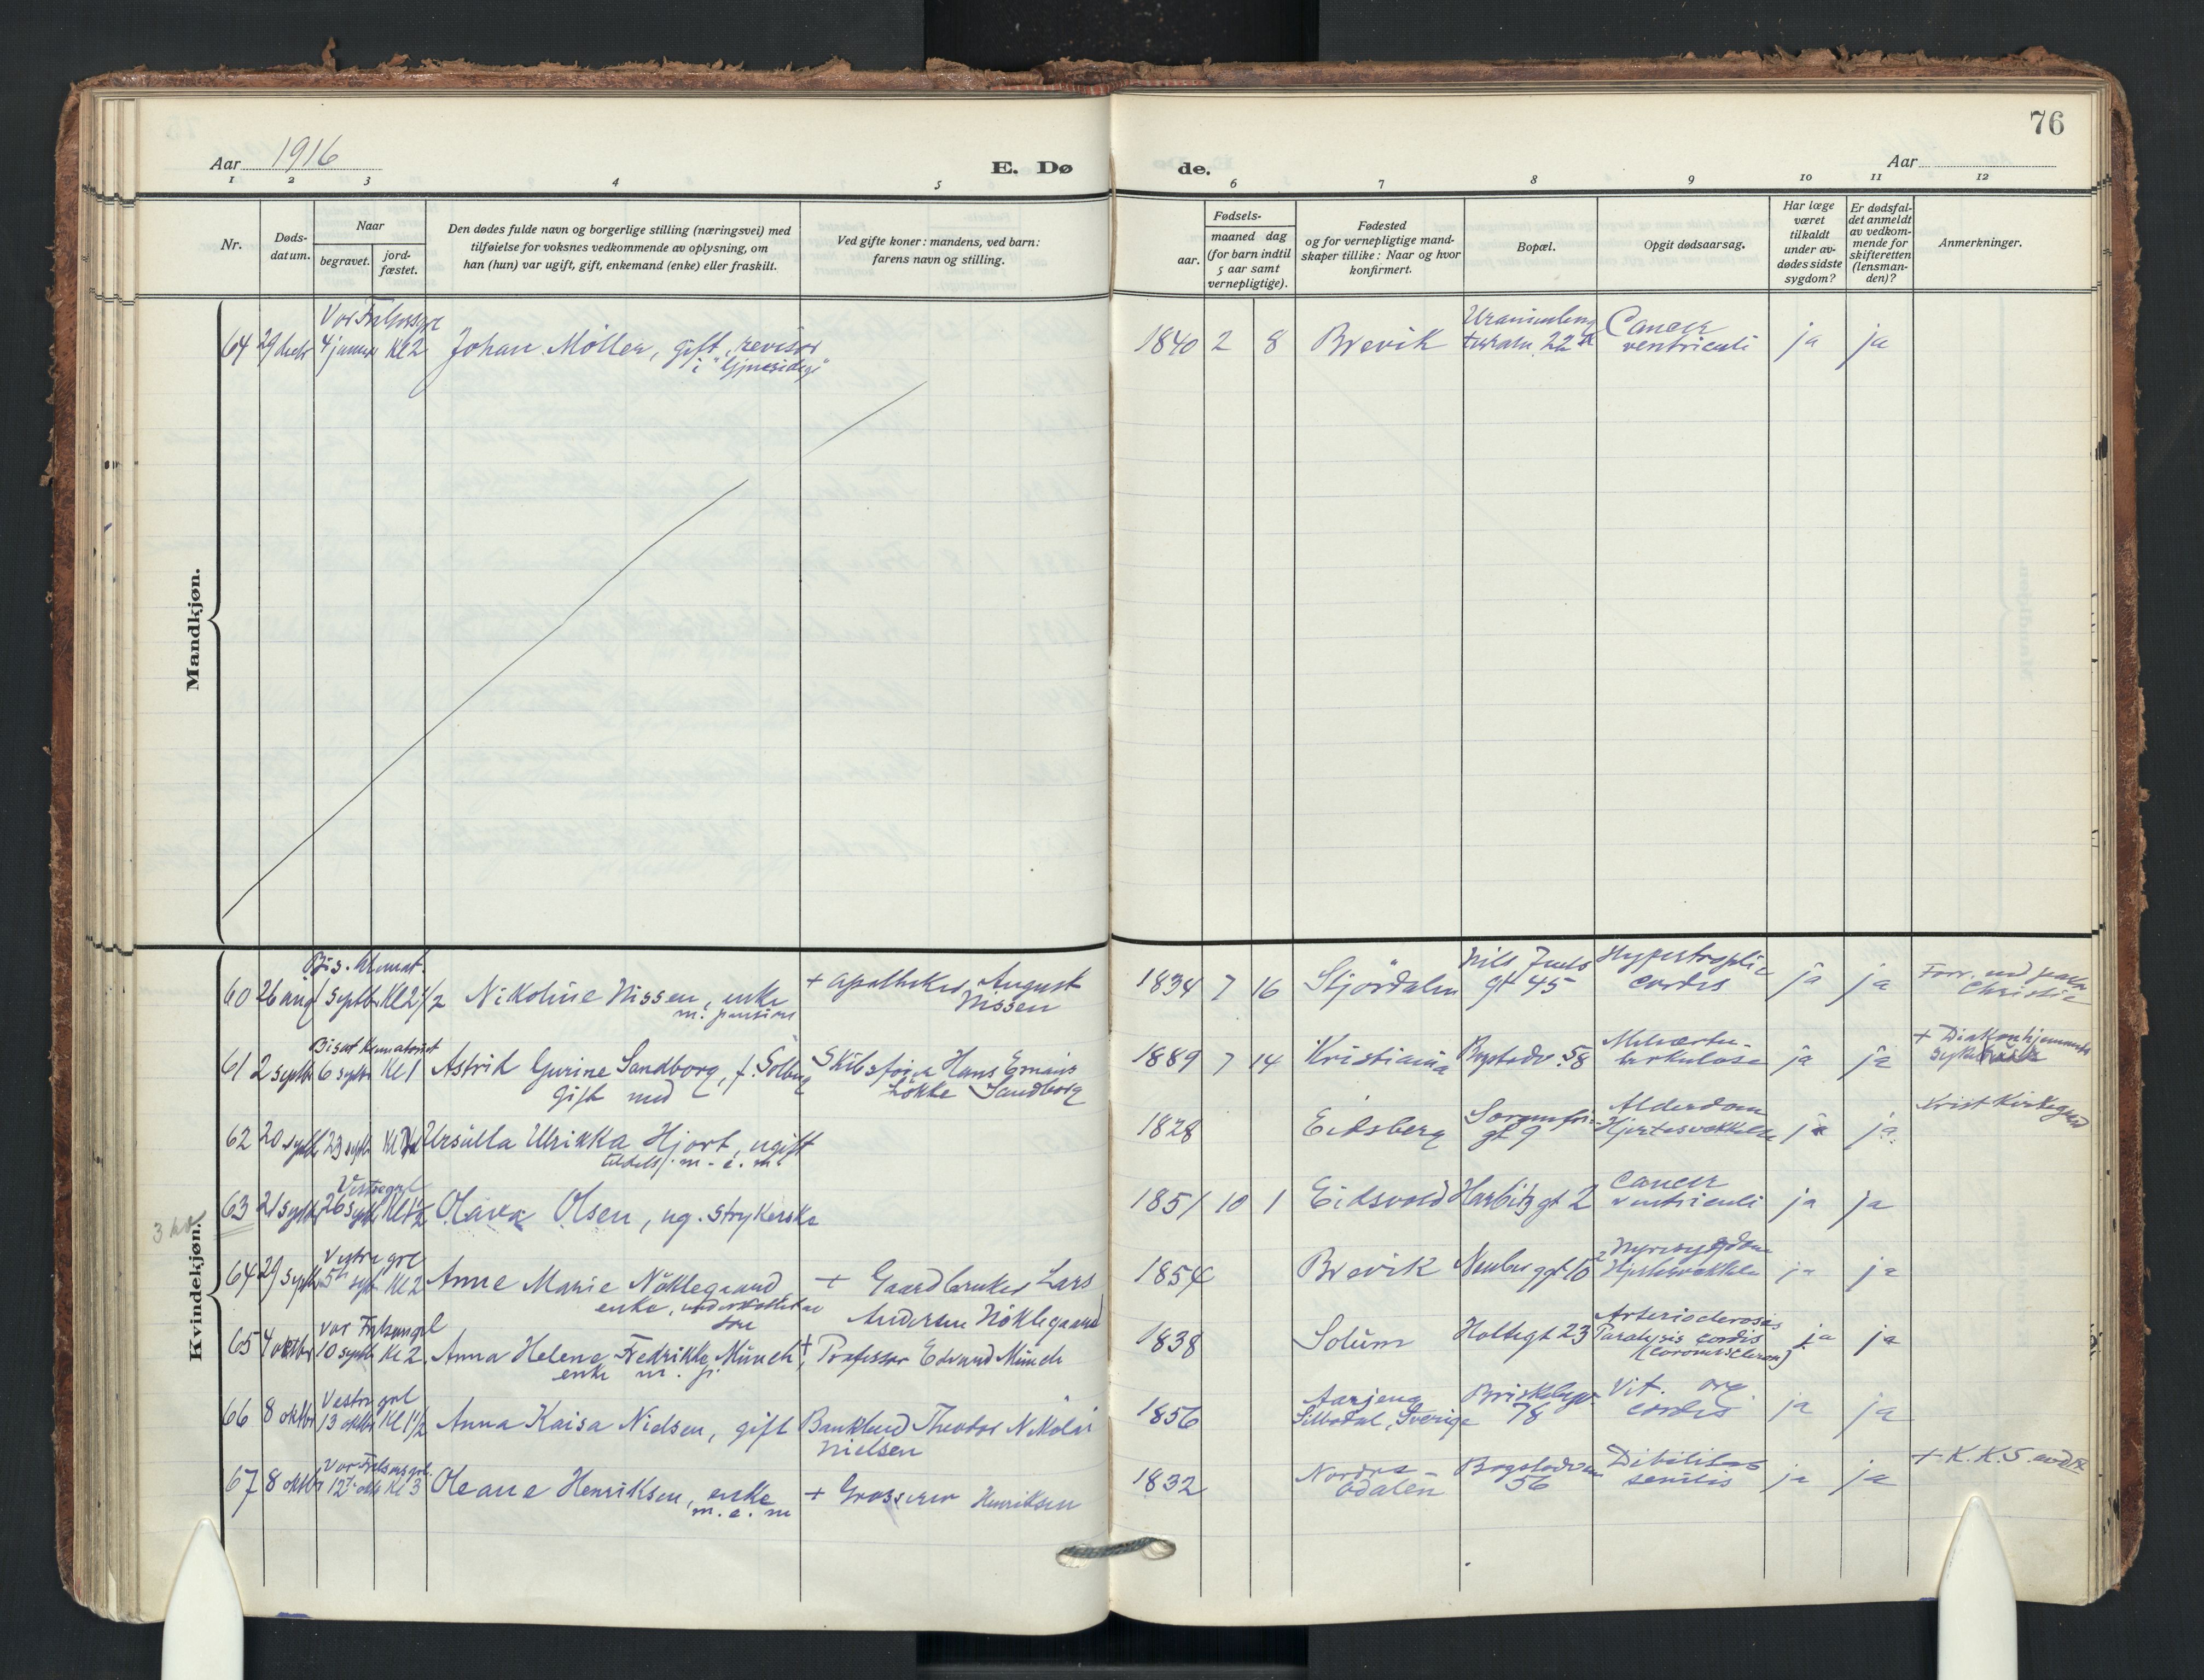 76
Aar 1916
E. Dø
de.
Aar
1 2 3 4 5 6 7 8 9 10 11 12
Nr.
Døds-
datum.
Naar
begravet.
jord-
fæstet.
Den dødes fulde navn og borgerlige stilling (næringsvei) med
tilføielse for voksnes vedkommende av oplysning, om
han (hun) var ugift, gift, enkemand (enke) eller fraskilt.
Ved gifte koner: mandens, ved barn:
farens navn og stilling.
Fødsels-
aar.
maaned dag
(for barn indtil
5 aar samt
vernepligtige).
Fødested
og for vernepligtige mand-
skaper tillike: Naar og hvor
konfirmert.
Bopæl.
Opgit dødsaarsag.
Har læge
været
tilkaldt
under av-
dødes sidste
sygdom?
Er dødsfal-
det anmeldt
av vedkom-
mende for
skifteretten
(lensman-
den)?
Anmerkninger.
Mandkjøn.
Vor Frelsersgrl
64 29 decbr 4 januar Kl 2 Johan Möller, gift, revisor
i "Gjensidige"
1840 2 8 Brevik
22
Cancer
ventriculi
ja ja
Kvindekjøn.
60 26 aug 1 septbr Kl 2 1/2 Nikoline Nissen, enke
m. pension
+ apotheker August
Nissen
1834 7 16 Stjördalen
Nils Juels
gt 45
Hypertrophie
cordis
ja ja
Christie
61 2 septbr 6 septbr Kl 1 Astrid Gurine Sandborg, f. Solberg
gift med
Skibsfører Hans
Løkke Sandborg
1889 7 14 Kristiania Bogstadv. 58
ja ja
+ Diakonhjemmets
62 20 septbr 23 septbr Ursulla Ulrikka Hjort, ugift
tildels m. e. m.
1828 Eidsberg
Sorgenfri-
gt 9
Alderdom
Hjertesvækkelse
ja ja
Krist Kirkegaard
3
63 21 septbr 26 septbr Kl 1 1/2 Olava Olsen, ug. strykerske
1851 10 1 Eidsvold Harbitz gt 2
Cancer
ventriculi
ja ja
Vestre grl
64 29 septbr Kl 2 Anne Marie Nöklegaard
enke,
+ Gaardbruker Lars
Andersen Nöklegaard
1854 Brevik
Nyresygdom
Hjertesvækkelse
ja ja
Vor Frelsersgrl
65 4 oktbr 10 septbr Kl 2 Anna Helene Fredrikke Münch
enke m. p.
+ Professor Edvard Münch
1838 Solum Holtegt 23
Paralysis cordis
ja ja
Vestre grl
66 8 oktbr 13 oktbr Kl 1 1/2 Anna Kaisa Nielsen, gift
Bankbud Theodor Nikolai
Nielsen
1856
Sillbodal, Sverige
78
Vit. org
cordis
ja ja
Vor Frelsersgrl.
67 8 oktbr 12 oktbr Kl 3 Oleane Henriksen, enke
m. e. m
+ Grosserer Henriksen
1832
Nordre
Odalen
Bogstadveien
56
Debilitas
senilis
ja ja
+ K. K. S.